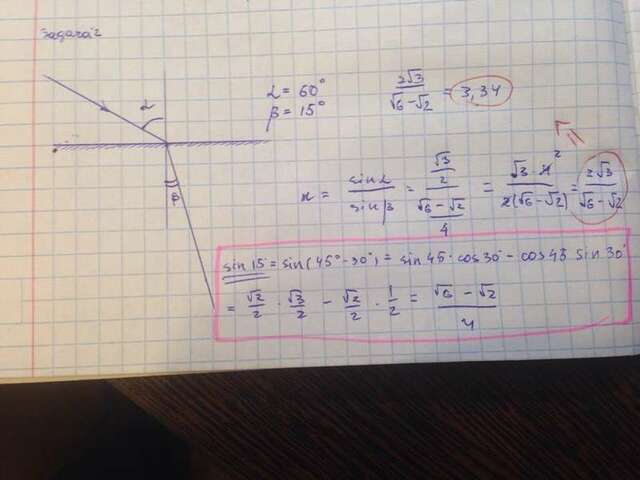 Задача 2
α
β
α = 60°
β = 15°
2√3 / (√6 - √2) = 3,34
n = sin α / sin β = (√3 / 2) / ((√6 - √2) / 4) = √3 · 4² / 2(√6 - √2) = 2√3 / (√6 - √2)
sin 15 = sin (45° - 30°) = sin 45 · cos 30° - cos 45 sin 30°
= √2/2 · √3/2 - √2/2 · 1/2 = (√6 - √2) / 4